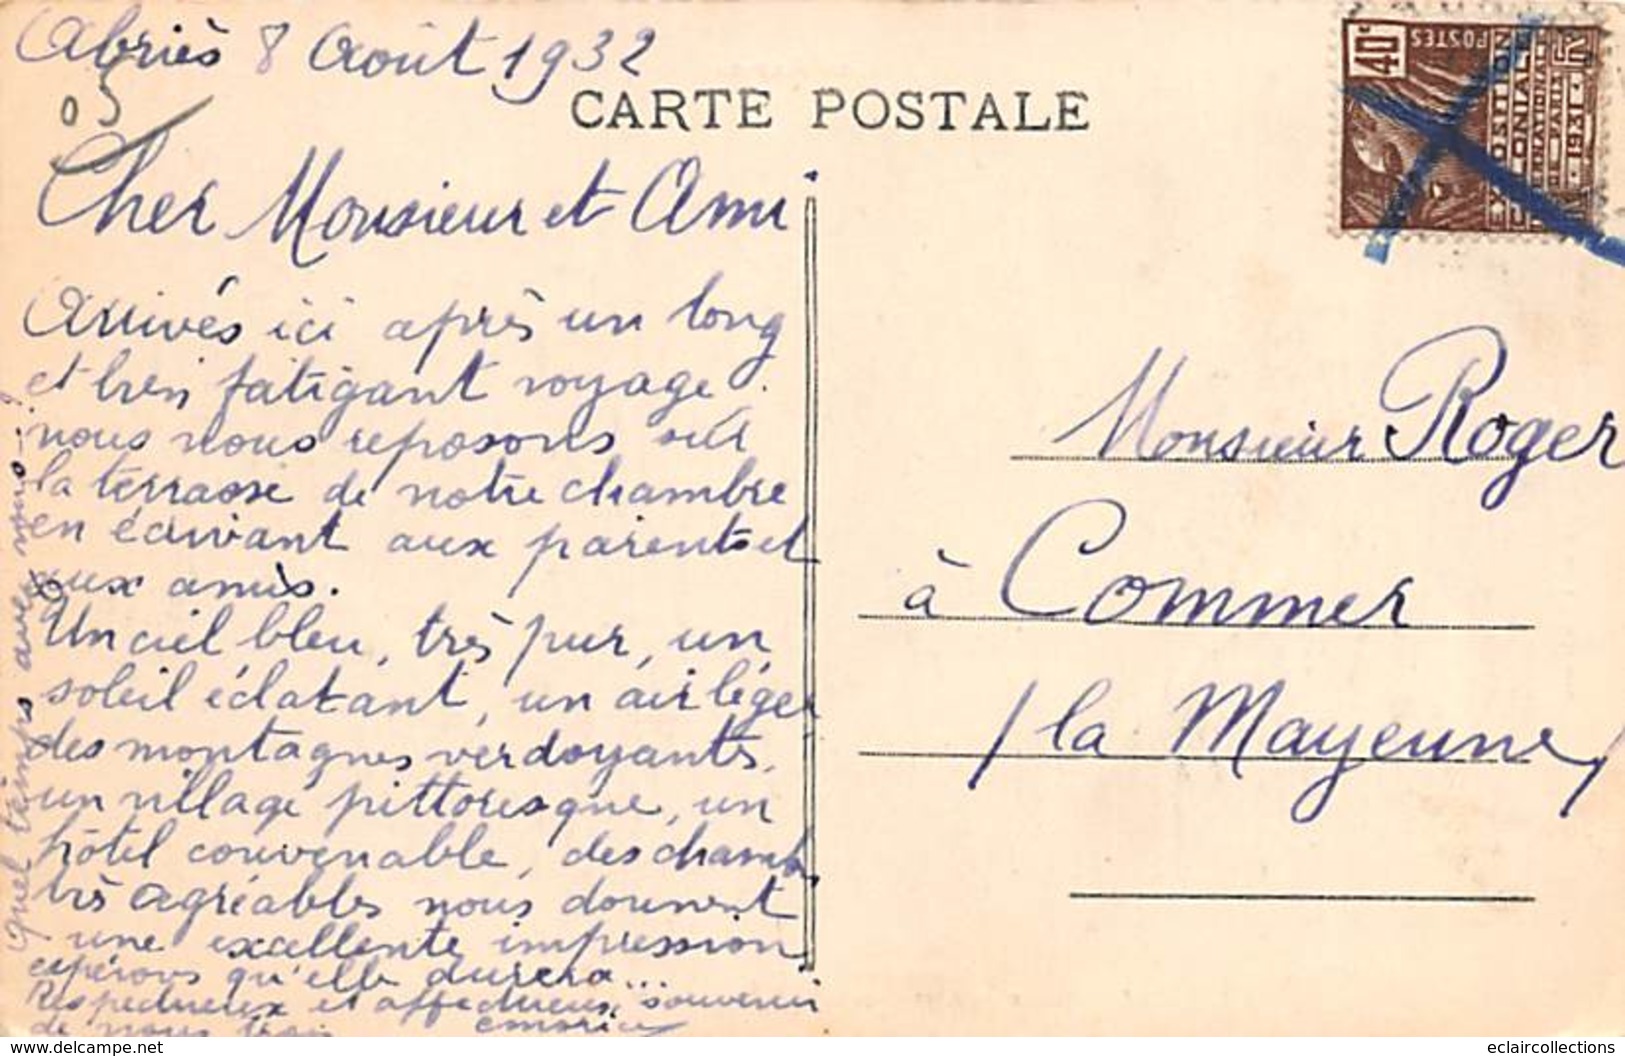 Abriès 8 Août 1932
05
CARTE POSTALE
40c
POSTES
EXPOSITION
COLONIALE
INTERNATIONALE
DE PARIS
1931
Cher Monsieur et Ami
Arrivés ici après un long
et bien fatigant voyage
nous nous reposons sur
la terrasse de notre chambre
en écrivant aux parents et
aux amis.
Un ciel bleu, très pur, un
soleil éclatant, un air léger
des montagnes verdoyantes,
un village pittoresque, un
hôtel convenable, des chamb.
très agréables nous donnent
une excellente impression
espérons qu'elle durera...
Respectueux et affectueux souvenir
de nous trois
Quel temps avez vous - !
Monsieur Roger
à Commer
(la Mayenne)
www.delcampe.net
eclaircollections